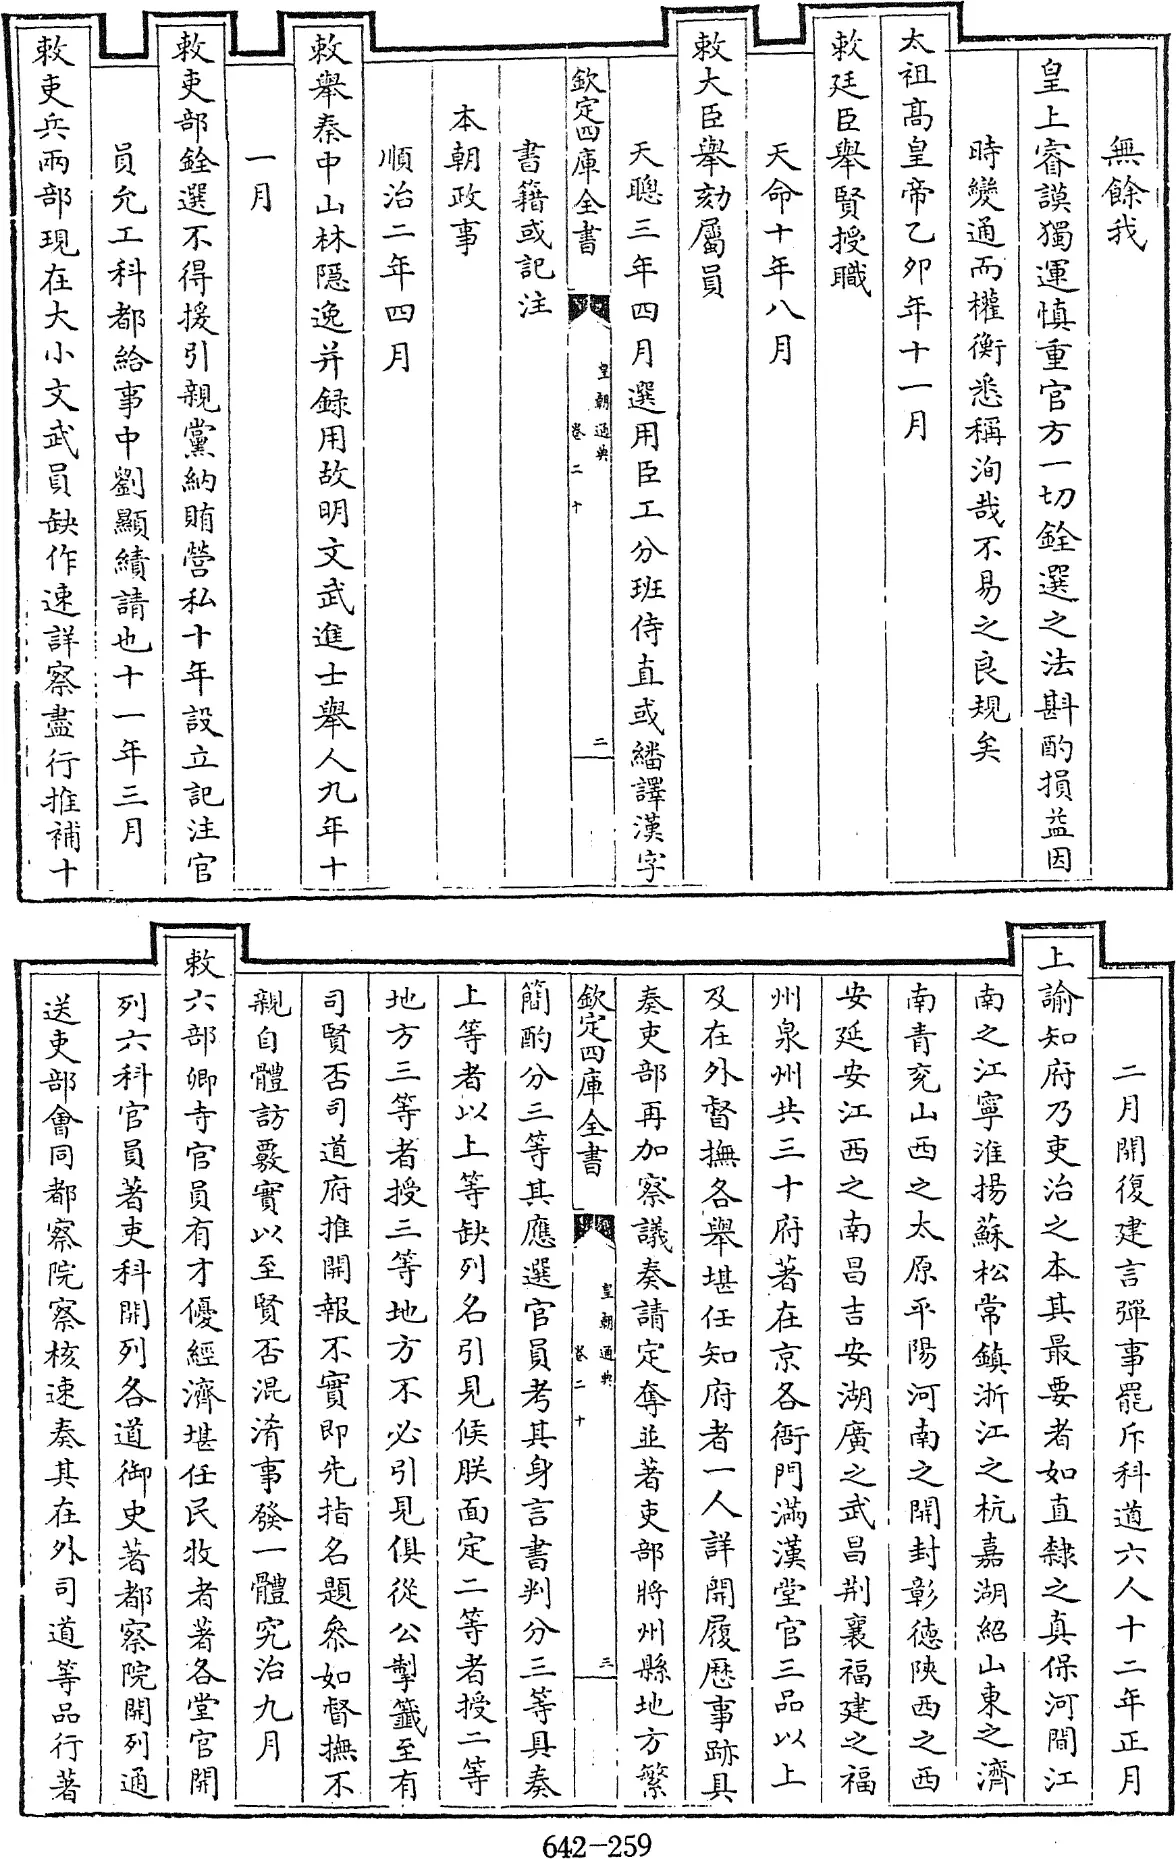 無餘我
皇上睿謨獨運慎重官方一切銓選之法斟酌損益因
時變通而權衡悉稱洵哉不易之良規矣
太祖髙皇帝乙卯年十一月
敕廷臣舉賢授職
天命十年八月
敕大臣舉劾屬員
天聰三年四月選用臣工分班侍直或繙譯漢字
欽定四庫全書
皇朝通典
卷二十
二
書籍或記注
本朝政事
順治二年四月
敕舉秦中山林隱逸并録用故明文武進士舉人九年十
一月
敕吏部銓選不得援引親黨納賄營私十年設立記注官
員允工科都給事中劉顯績請也十一年三月
敕吏兵兩部現在大小文武員缺作速詳察盡行推補十
二月開復建言彈事罷斥科道六人十二年正月
上諭知府乃吏治之本其最要者如直隸之真保河間江
南之江寧淮揚蘇松常鎮浙江之杭嘉湖紹山東之濟
南青兖山西之太原平陽河南之開封彰徳陝西之西
安延安江西之南昌吉安湖廣之武昌荆襄福建之福
州泉州共三十府著在京各衙門滿漢堂官三品以上
及在外督撫各舉堪任知府者一人詳開履歷事跡具
奏吏部再加察議奏請定奪並著吏部將州縣地方繁
欽定四庫全書
皇朝通典
卷二十
三
簡酌分三等其應選官員考其身言書判分三等具奏
上等者以上等缺列名引見候朕面定二等者授二等
地方三等者授三等地方不必引見俱從公掣籤至有
司賢否司道府推開報不實即先指名題叅如督撫不
親自體訪覈實以至賢否混淆事發一體究治九月
敕六部卿寺官員有才優經濟堪任民牧者著各堂官開
列六科官員著吏科開列各道御史著都察院開列通
送吏部會同都察院察核速奏其在外司道等品行著
642-259